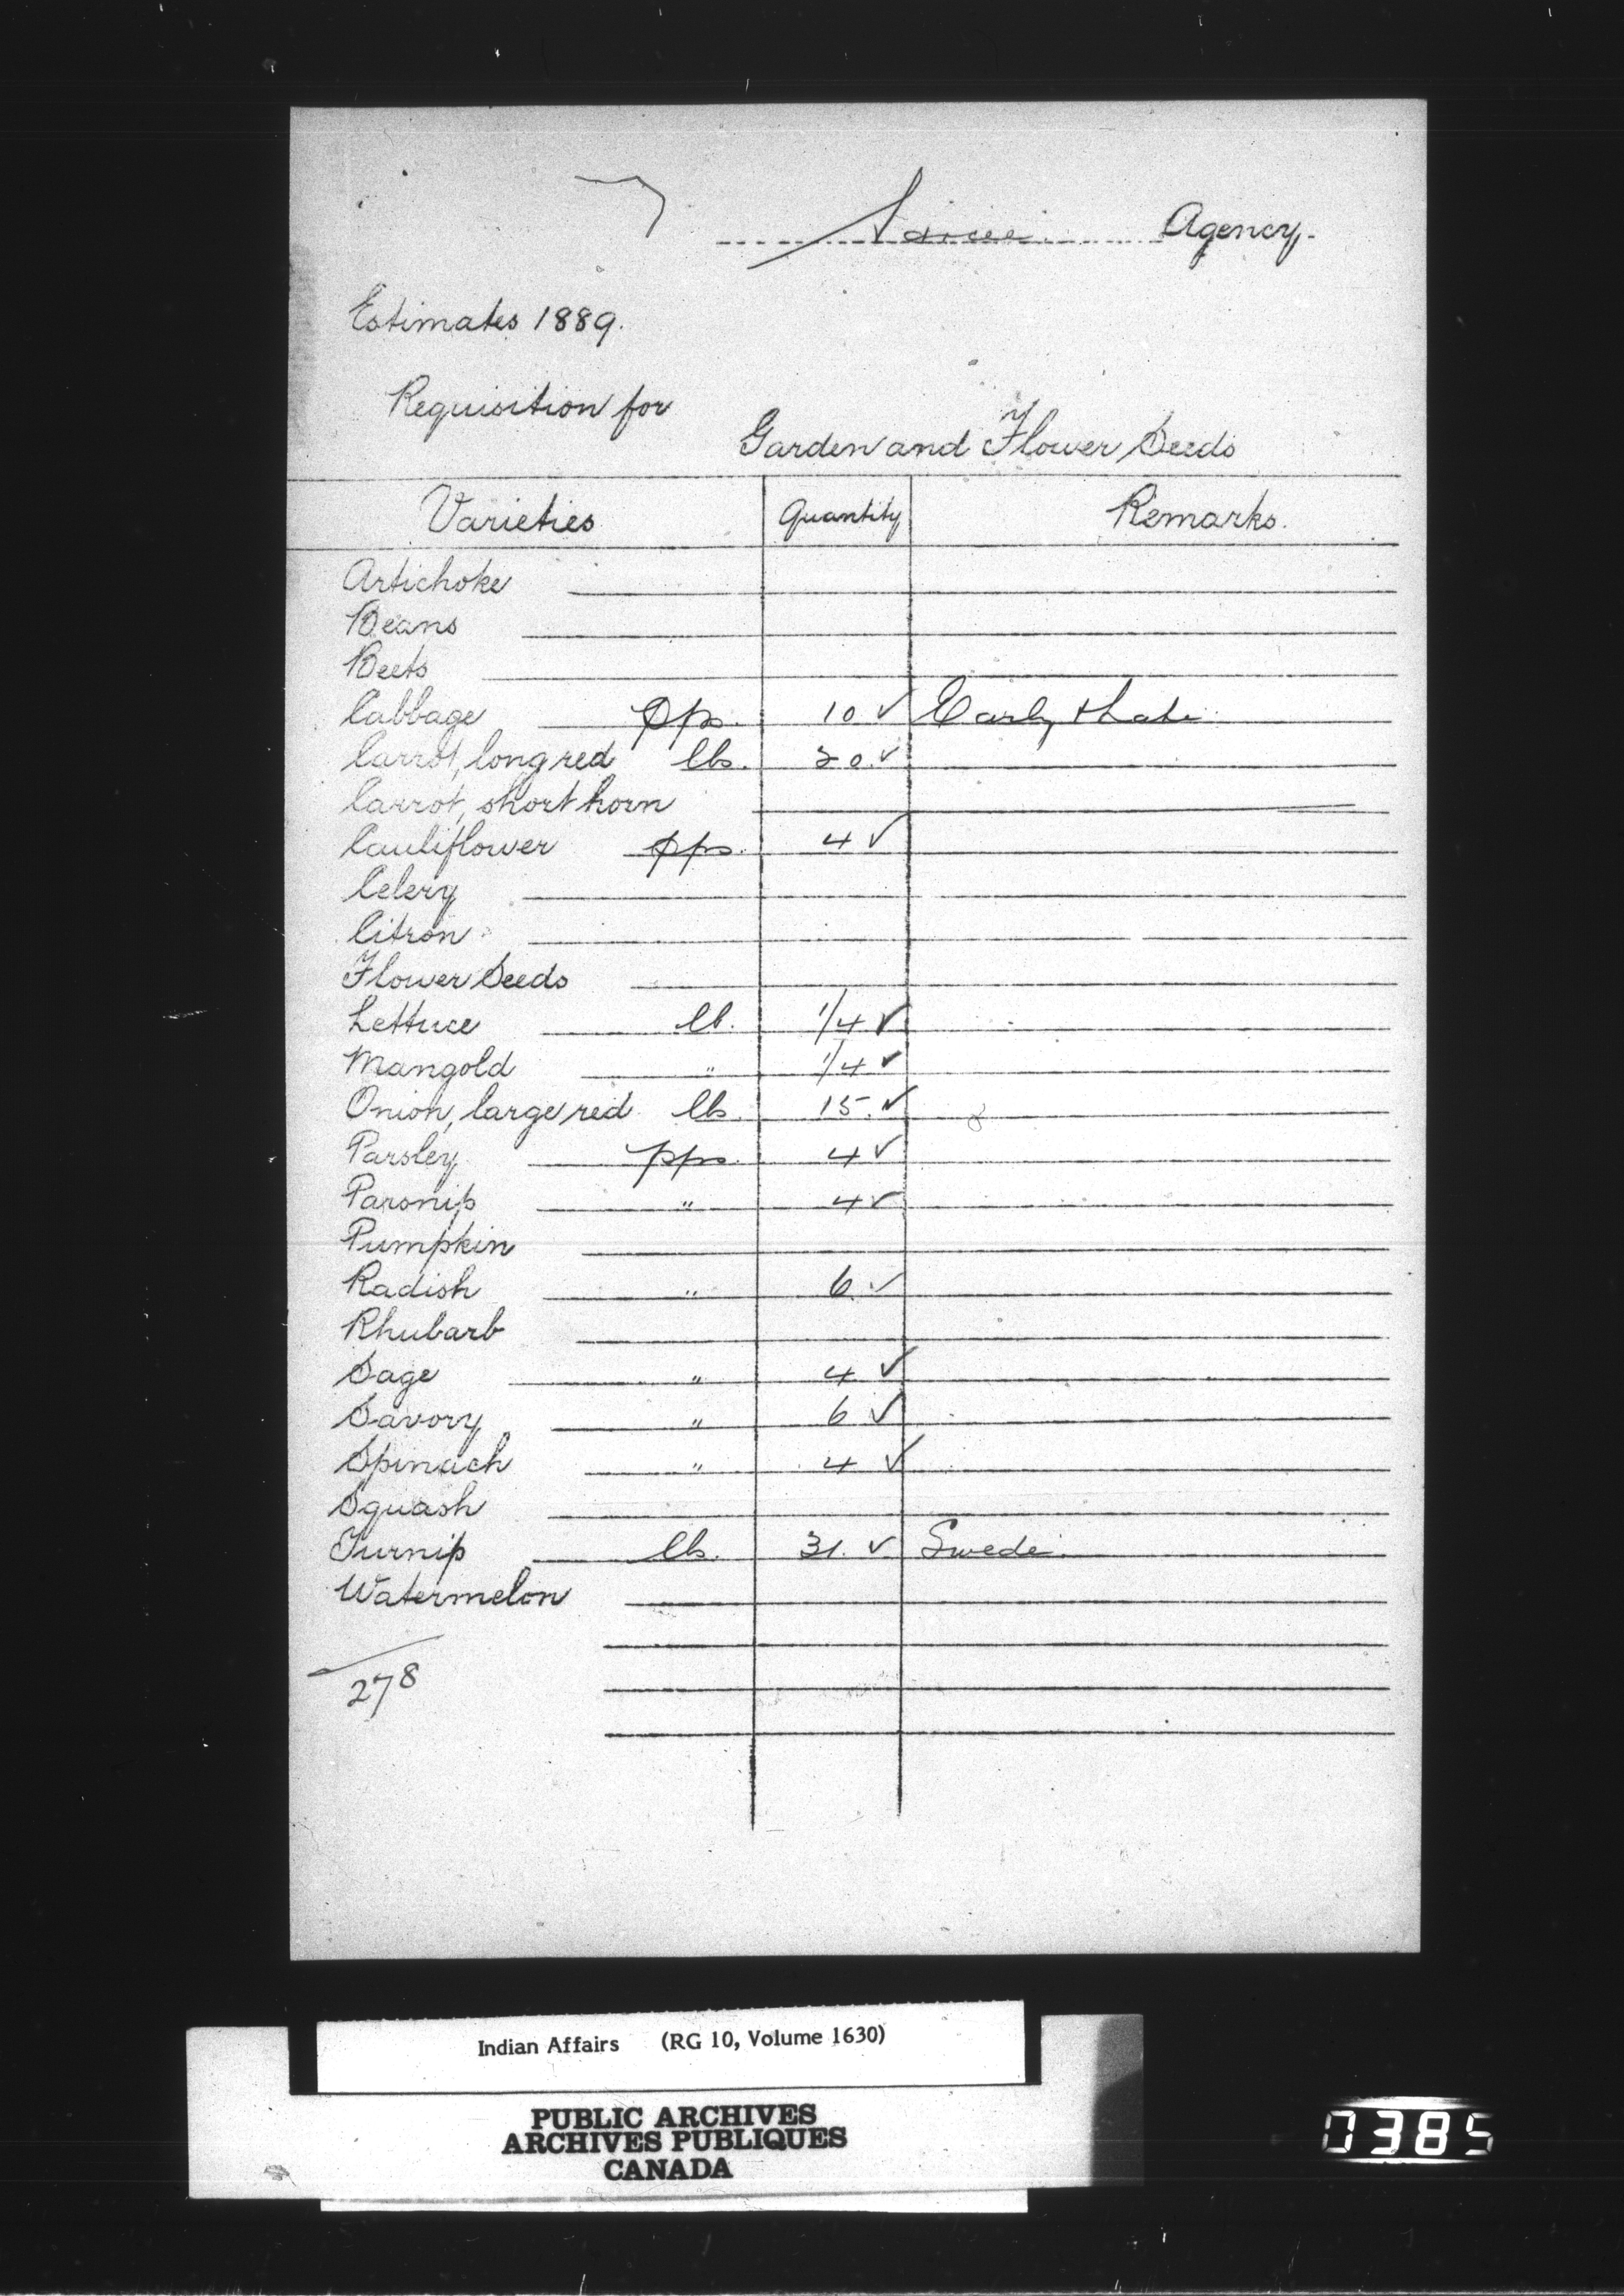 Sarcee Agency.
Estimates 1889.
Requisition for
Garden and Flower Seeds
Varieties Quantity Remarks.
Artichoke
Beans
Beets
Cabbage pps. 10 ✓ Early & Late
Carrot, long red lbs. 20 ✓
Carrot, short horn
Cauliflower pps. 4 ✓
Celery
Citron
Flower Seeds
Lettuce lb. 1/4 ✓
Mangold " 1/4 ✓
Onion, large red lb. 15. ✓
Parsley pps. 4 ✓
Parsnip " 4 ✓
Pumpkin
Radish " 6 ✓
Rhubarb
Sage " 4 ✓
Savory " 6 ✓
Spinach " 4 ✓
Squash
Turnip lb. 31. ✓ Swede.
Watermelon
278
Indian Affairs (RG 10, Volume 1630)
PUBLIC ARCHIVES
ARCHIVES PUBLIQUES
CANADA
0385